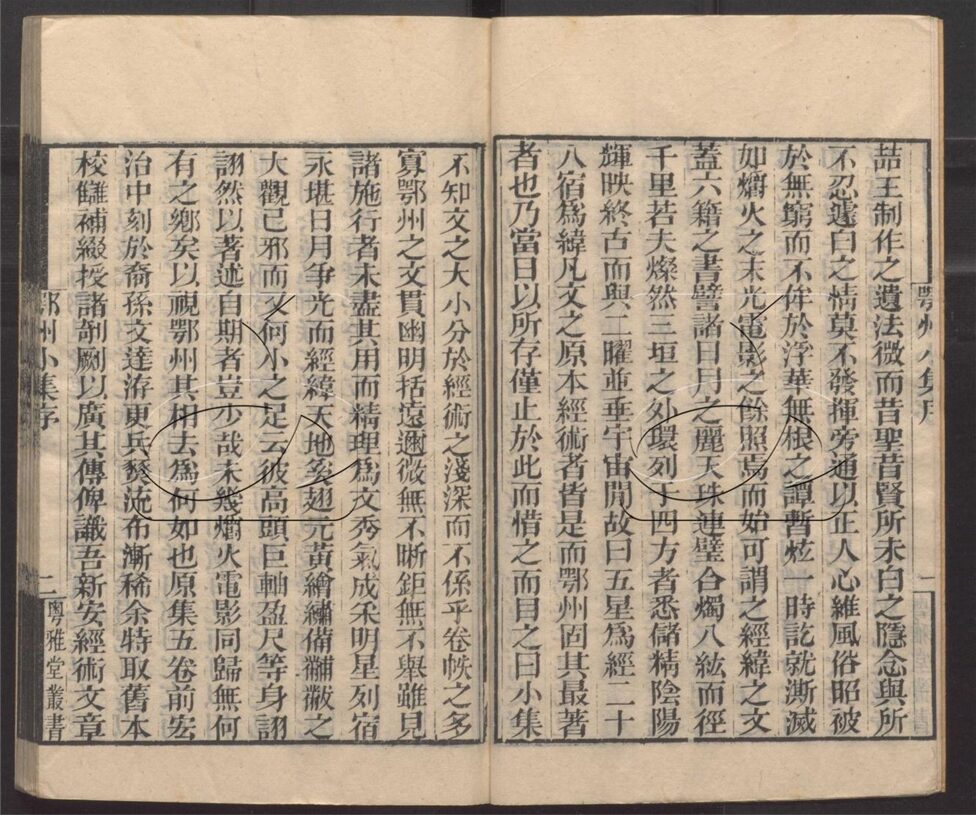 喆王制作之遺法微而昔聖昔賢所未白之隱念與所
不忍遽白之情莫不發揮旁通以正人心維風俗昭被
於無窮而不侔於浮華無根之譚暫炫一時訖就澌滅
如爝火之末光電影之餘照焉而始可謂之經緯之文
蓋六籍之書譬諸日月之麗天珠連璧合燭八紘而徑
千里若夫燦然三垣之外環列于四方者悉儲精陰陽
輝映終古而與二曜並垂宇宙閒故曰五星爲經二十
八宿爲緯凡文之原本經術者皆是而鄂州固其最著
者也乃當日以所存僅止於此而惜之而目之曰小集
鄂州小集序
一
不知文之大小分於經術之淺深而不係乎卷帙之多
寡鄂州之文貫幽明括遠邇微無不晰鉅無不舉雖見
諸施行者未盡其用而精理爲文秀氣成采明星列宿
永堪日月爭光而經緯天地矣翅元黃繪繡備黼黻之
大觀已邪而又何小之足云彼高頭巨軸盈尺等身詡
詡然以著述自期者豈少哉未幾爝火電影同歸無何
有之鄉矣以視鄂州其相去爲何如也原集五卷前宏
治中刻於裔孫文達洊更兵燹流布漸稀余特取舊本
校讎補綴授諸剞劂以廣其傳俾議吾新安經術文章
鄂州小集序
二
粵雅堂叢書